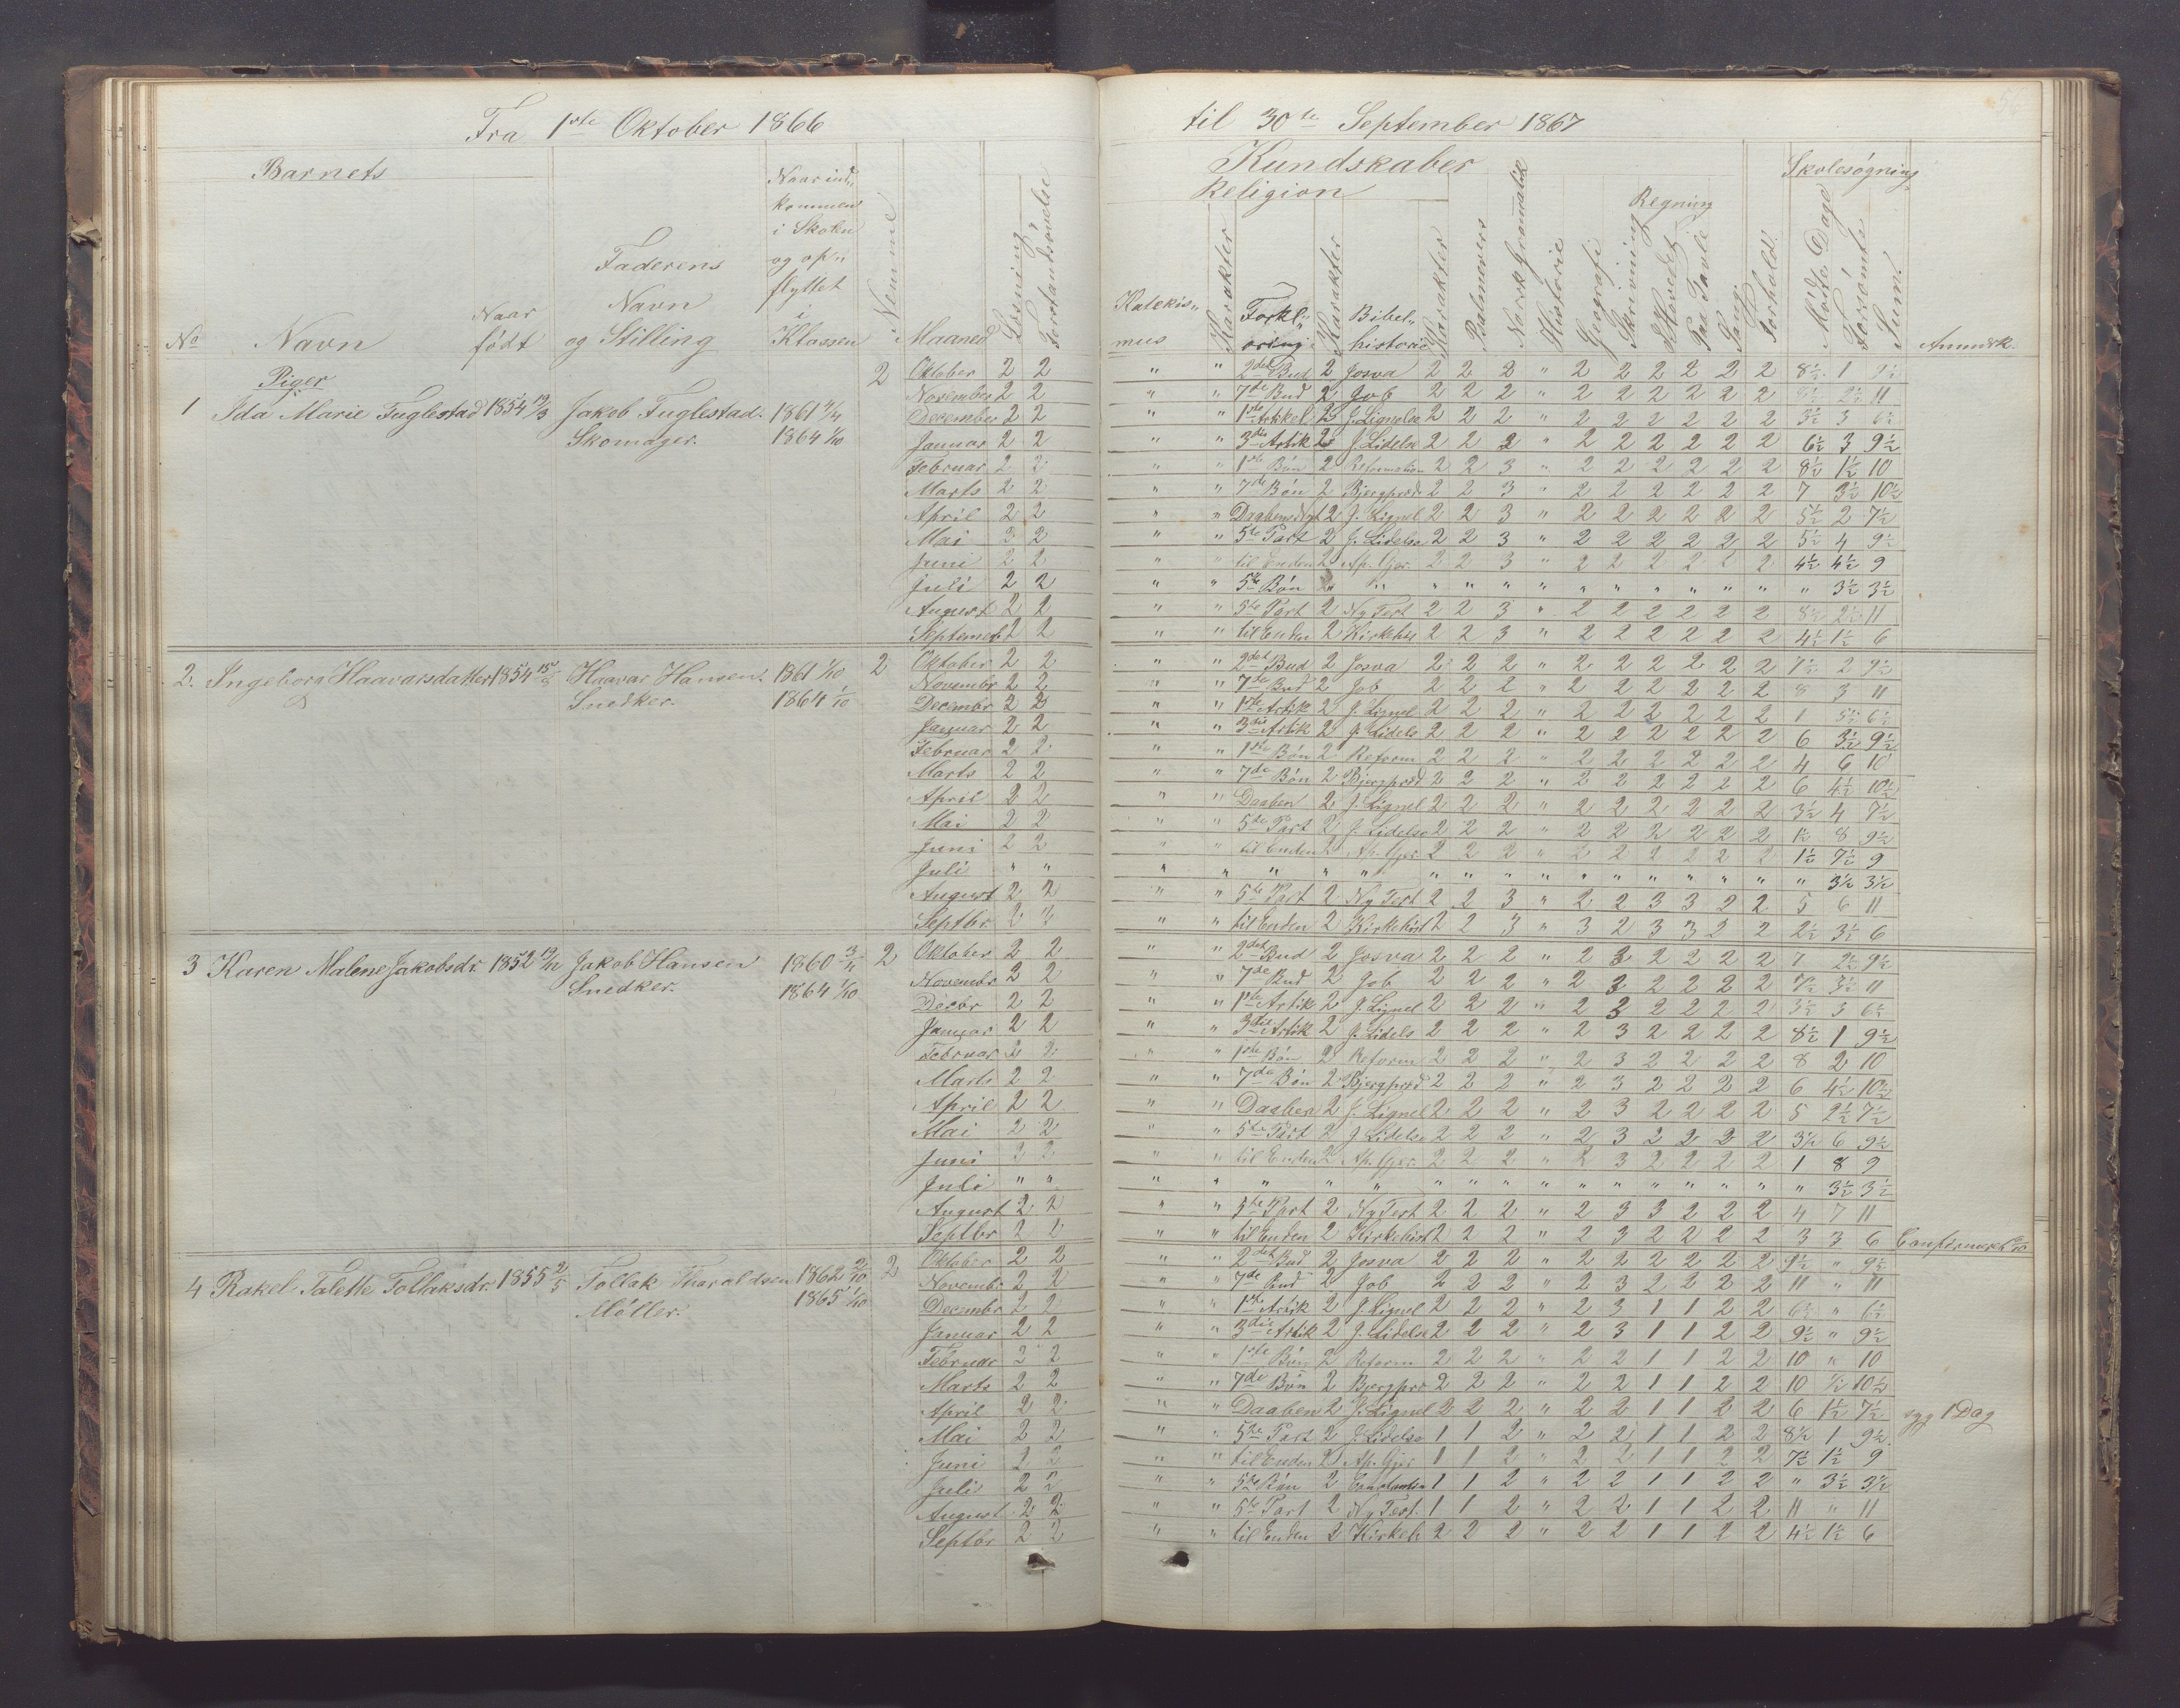 Fra 1ste Oktober 1866 til 30te September 1867
Barnets
Naar ind-
kommen
i Skolen
og op-
flyttet
i
Klassen
Faderens
Navn
og Stilling
No Navn
Naar
født
Nemme
Maaned
Læsning
Forstandsøvelse
Kundskaber
Religion
Katekis-
mus
Karakter
Forkl-
aring
Karakter
Bibel-
historie
Karakter
Psalmevers
Norsk Grammatik
Historie
Geografi
Skrivning
Regning
I Hovedet
Paa Tavle
Sang
Forhold
Skolesøgning
Mødte Dage
Forsømte
Sum
Anmærk.
Piger
1 Ida Marie Fuglestad 1854 12/3 Jakob Fuglestad. 1861 4/4 2
Skomager. 1864 1/10
Oktober 2 2 " " 2det Bud 2 Josva 2 2 2 " 2 2 2 2 2 2 8½ 1 9½
November 2 2 " " 7de Bud 2 Job 2 2 2 " 2 2 2 2 2 2 8½ 2½ 11
December 2 2 " " 1ste Artikkel 2 J. Lignelse 2 2 2 " 2 2 2 2 2 2 3½ 3 6½
Januar 2 2 " " 3die Artik 2 J. Lidelse 2 2 2 " 2 2 2 2 2 2 6½ 3 9½
Februar 2 2 " " 1ste Bøn 2 Reformation 2 2 3 " 2 2 2 2 2 2 8½ 1½ 10
Marts 2 2 " " 7de Bøn 2 Bjergpræd 2 2 3 " 2 2 2 2 2 2 7 3½ 10½
April 2 2 " " Daabens 2 J. Lignel 2 2 3 " 2 2 2 2 2 2 5½ 2 7½
Mai 2 2 " " 5te Part 2 J. Lidelse 2 2 3 " 2 2 2 2 2 2 5½ 4 9½
Juni 2 2 " " til Enden 2 Ap. Gjer. 2 2 3 " 2 2 2 2 2 2 4½ 4½ 9
Juli 2 2 " " 5te Bøn 2 " " " " " " " " " " " " 3½ 3½
August 2 2 " " 5te Part 2 Ny Test 2 2 3 " 2 2 2 2 2 2 8½ 2½ 11
Septemb 2 2 " " til Enden 2 Kirkehis 2 2 3 " 2 2 2 2 2 2 4½ 1½ 6
2. Ingeborg Haavarsdatter 1854 15/8 Haavar Hansen. 1861 1/10 2
Snedker. 1864 1/10
Oktober 2 2 " " 2det Bud 2 Josva 2 2 2 " 2 2 2 2 2 2 7½ 2 9½
Novembr 2 2 " " 7de Bud 2 Job 2 2 2 " 2 2 2 2 2 2 8 3 11
Decembr 2 2 " " 1ste Artik 2 J. Lignel 2 2 2 " 2 2 2 2 2 2 1 5½ 6½
Januar 2 2 " " 3die Artik 2 J. Lidels 2 2 2 " 2 2 2 2 2 2 6 3½ 9½
Februar 2 2 " " 1ste Bøn 2 Reform 2 2 2 " 2 2 2 2 2 2 4 6 10
Marts 2 2 " " 7de Bøn 2 Bjergpræd 2 2 2 " 2 2 2 2 2 2 6 4½ 10½
April 2 2 " " Daaben 2 J. Lignel 2 2 2 " 2 2 2 2 2 2 3½ 4 7½
Mai 2 2 " " 5te Part 2 J. Lidelse 2 2 2 " 2 2 2 2 2 2 1½ 8 9½
Juni 2 2 " " til Enden 2 Ap. Gjer. 2 2 2 " 2 2 2 2 2 2 1½ 7½ 9
Juli " " " " " " " " " " " " " " " " " " 3½ 3½
August 2 2 " " 5te Part 2 Ny Test 2 2 3 " 2 2 3 3 2 2 5 6 11
Septbr 2 2 " " til Enden 2 Kirkehist 2 2 3 " 3 2 3 3 2 2 2½ 3½ 6
3 Karen Malene Jakobsdr. 1852 19/12 Jakob Hansen 1860 3/11 2
Snedker. 1864 1/10
Oktober 2 2 " " 2det Bud 2 Josva 2 2 2 " 2 3 2 2 2 2 7 2½ 9½
Novembr 2 2 " " 7de Bud 2 Job 2 2 2 " 2 3 2 2 2 2 7½ 3½ 11
Decbr 2 2 " " 1ste Artik 2 J. Lignel 2 2 2 " 2 3 2 2 2 2 3½ 3 6½
Januar 2 2 " " 3die Artik 2 J. Lidels 2 2 2 " 2 3 2 2 2 2 8½ 1 9½
Februar 2 2 " " 1ste Bøn 2 Reform 2 2 2 " 2 3 2 2 2 2 8 2 10
Marts 2 2 " " 7de Bøn 2 Bjergpræd 2 2 2 " 2 3 2 2 2 2 6 4½ 10½
April 2 2 " " Daaben 2 J. Lignel 2 2 2 " 2 3 2 2 2 2 5 2½ 7½
Mai 2 2 " " 5te Part 2 J. Lidelse 2 2 2 " 2 3 2 2 2 2 3½ 6 9½
Juni 2 2 " " til Enden 2 Ap. Gjer. 2 2 2 " 2 3 2 2 2 2 1 8 9
Juli " " " " " " " " " " " " " " " " " " 3½ 3½
August 2 2 " " 5te Part 2 Ny Test 2 2 2 " 2 3 3 2 2 2 4 7 11
Septbr 2 2 " " til Enden 2 Kirkehist 2 2 2 " 2 3 2 2 2 2 3 3 6 Confirmeret
4 Rakel Talette Tollaksdr. 1855 2/5 Tollak Tharaldsen 1862 2/10 2
Møller. 1865 1/10
Oktober 2 2 " " 2det Bud 2 Josva 2 2 2 " 2 2 2 2 2 2 9½ " 9½
Novembr 2 2 " " 7de Bud 2 Job 2 2 2 " 2 3 2 2 2 2 11 " 11
Decembr 2 2 " " 1ste Artik 2 J. Lignel 2 2 2 " 2 3 1 1 2 2 6½ " 6½
Januar 2 2 " " 3die Artik 2 J. Lidelse 2 2 2 " 2 3 1 1 2 2 9½ " 9½
Februar 2 2 " " 1ste Bøn 2 Reform 2 2 2 " 2 2 1 1 2 2 10 " 10
Marts 2 2 " " 7de Bøn 2 Bjergpræ 2 2 2 " 2 2 1 1 2 2 10 ½ 10½
April 2 2 " " Daaben 2 J. Lignel 2 2 2 " 2 2 1 1 2 2 6 1½ 7½ syg 1 Dag
Mai 2 2 " " 5te Part 2 J. Lidelse 1 1 2 " 2 2 1 1 2 2 8½ 1 9½
Juni 2 2 " " til Enden 2 Ap. Gjer 1 1 2 " 2 2 1 1 2 2 7½ 1½ 9
Juli 2 2 " " 5te Bøn 2 Constantin 1 1 2 " 2 2 1 1 2 2 " 3½ 3½
August 2 2 " " 5te Part 2 Ny Test. 1 1 2 " 2 2 1 1 2 2 11 " 11
Septbr 2 2 " " til Enden 2 Kirkeh 2 2 2 " 2 2 1 1 2 2 4½ 1½ 6